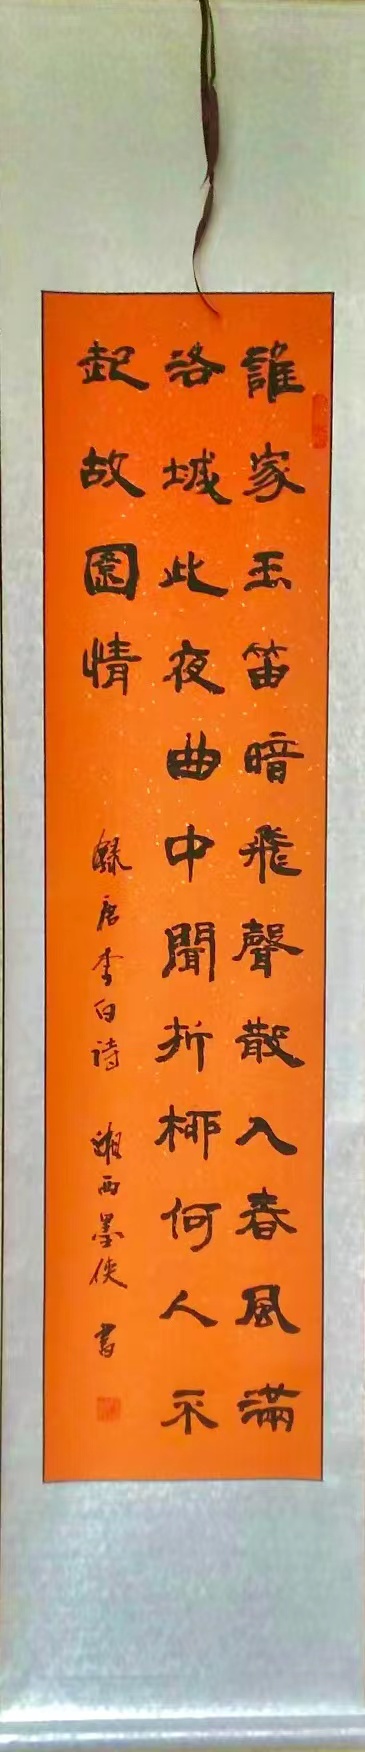 誰家玉笛暗飛聲散入春風滿
洛城此夜曲中聞折柳何人不
起故園情
録唐李白诗 湘西墨侠 書